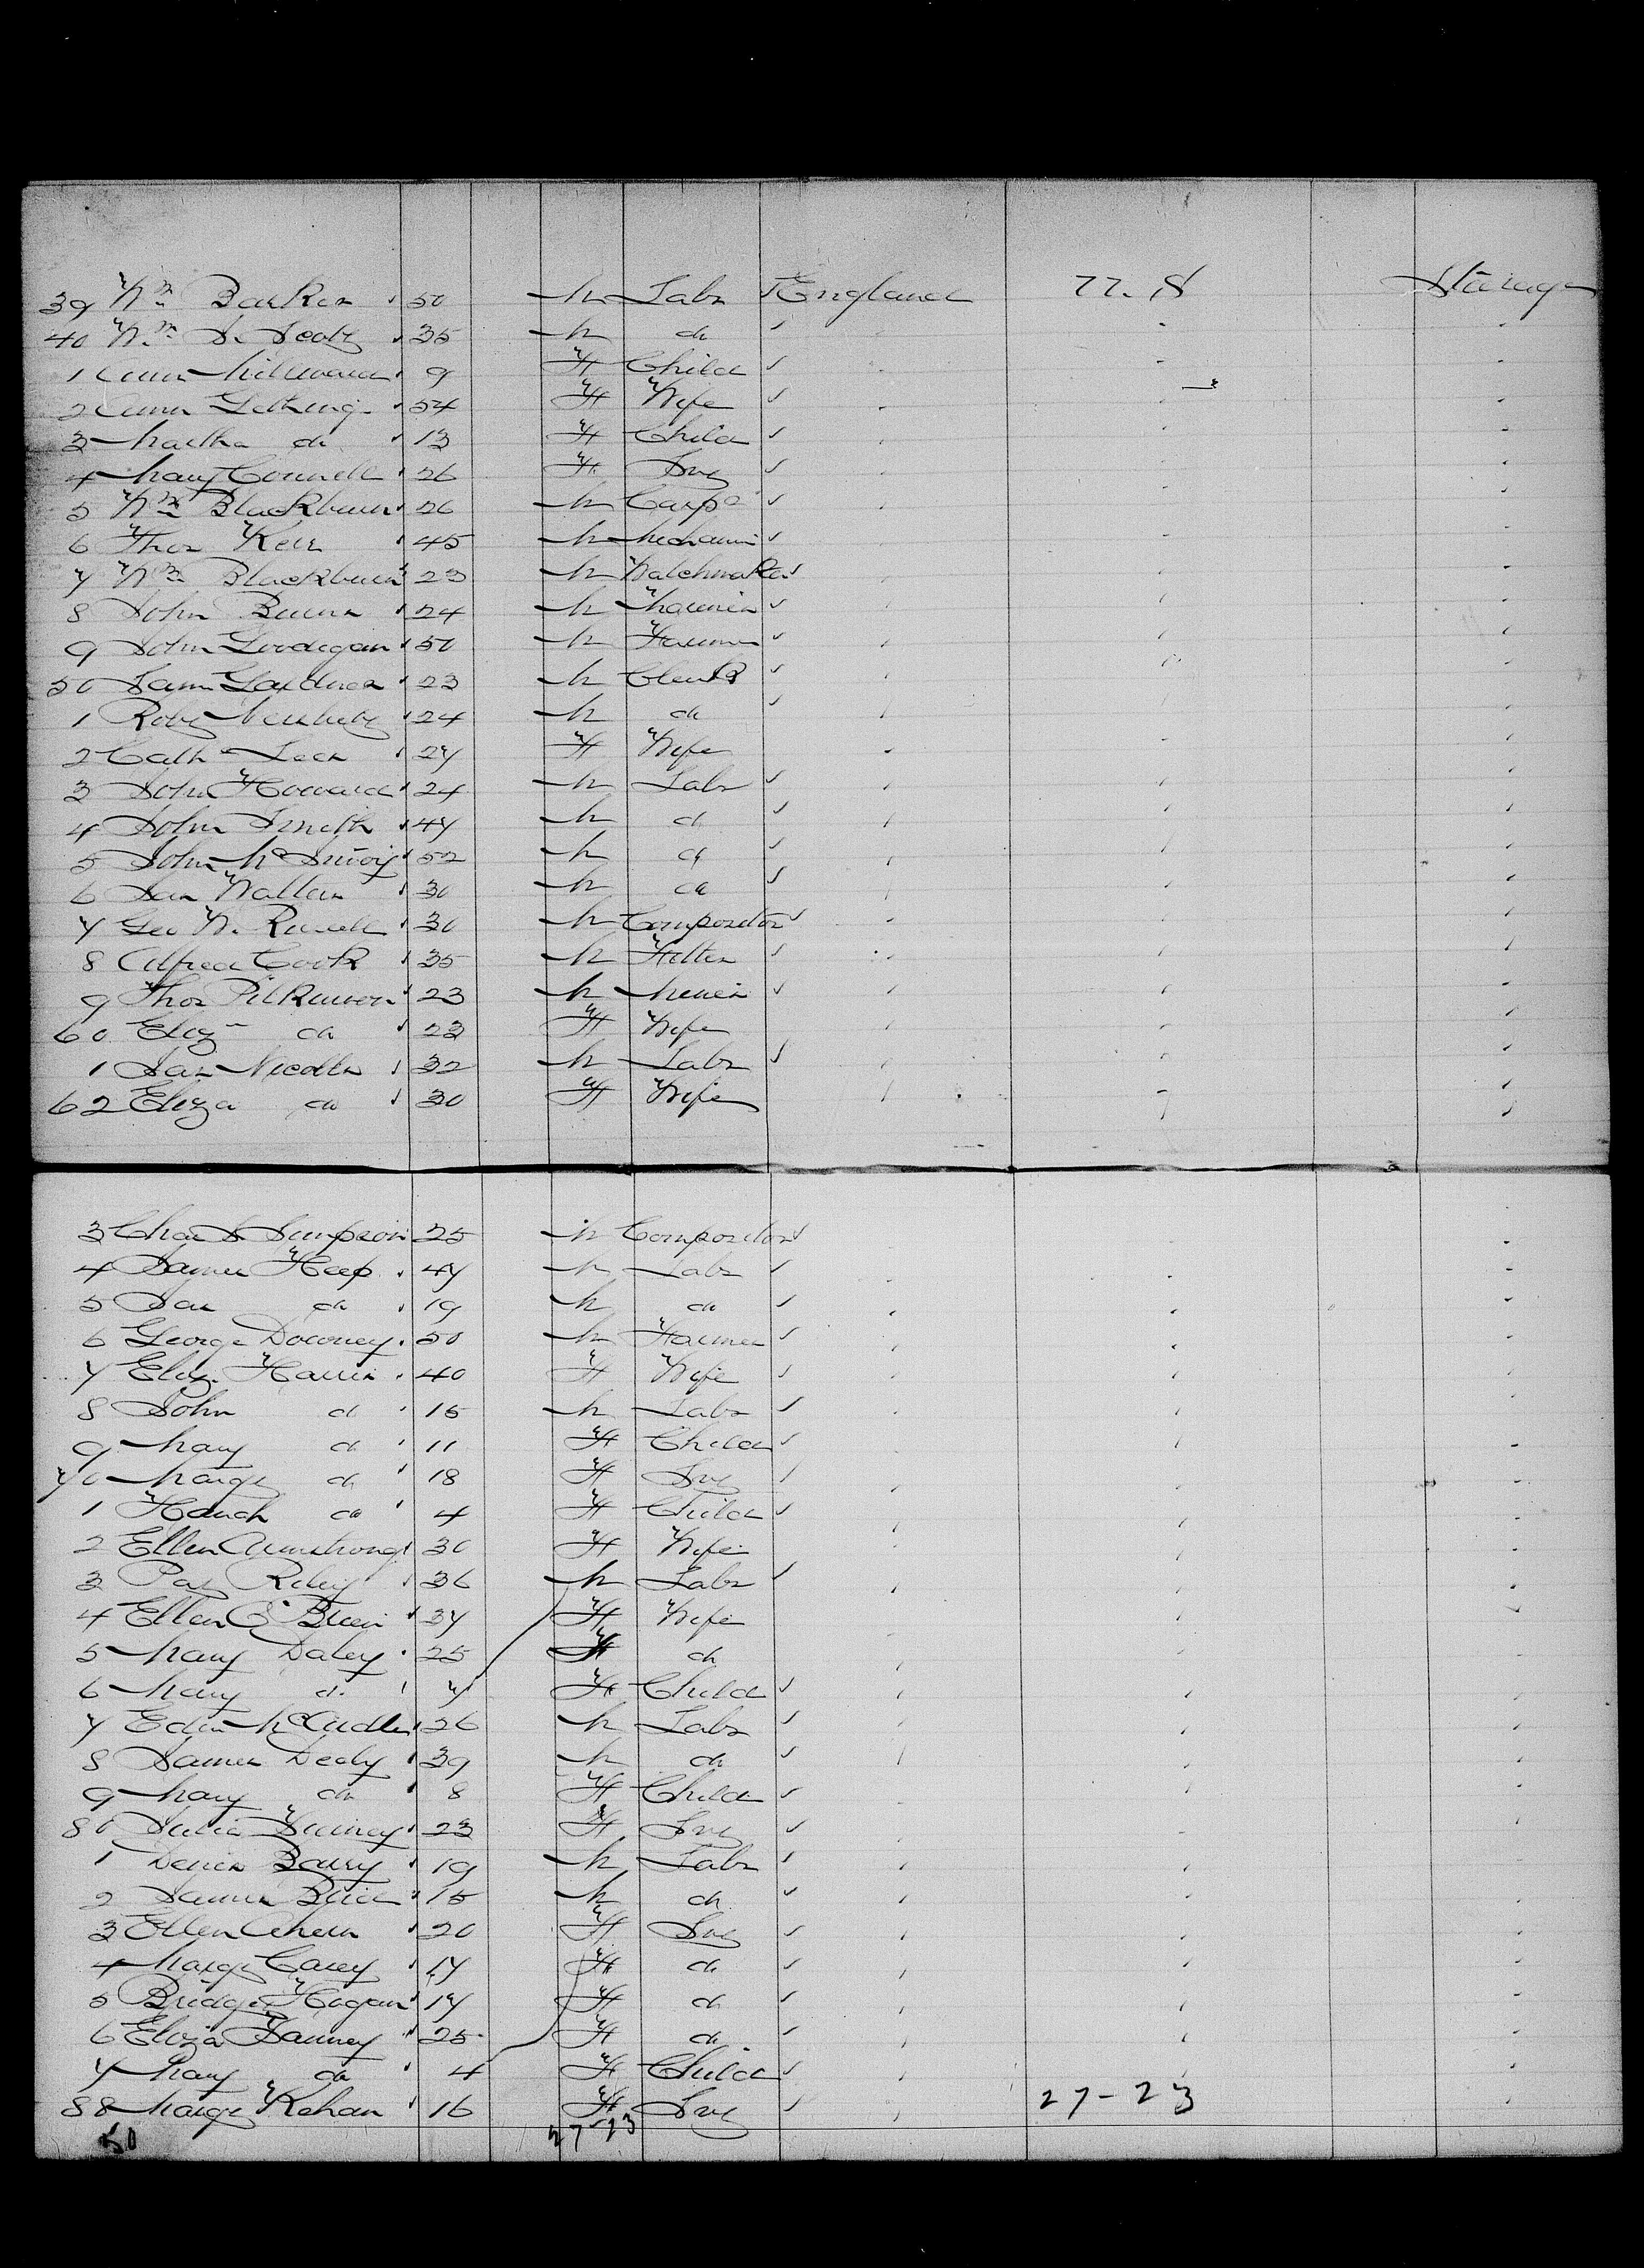 39 Wm Barker 50 M Labr England U.S Steerage
40 Wm S. Scott 35 M do
1 Ann 9 F Child
2 Ann Gethung 54 F Wife
3 Martha do 13 F Child
4 Mary Connell 26 F Svt
5 Wm Blackburn 26 M Carpr
6 Thos Kerr 45 M Mechanic
7 Wm Blackburn 23 M Watchmaker
8 John Burns 24 M Mariner
9 John Goodigan 50 M Farmer
50 Saml Gardner 23 M Clerk
1 Robt 24 M do
2 Cath Leck 27 F Wife
3 John Howard 24 M Labr
4 John Smith 47 M do
5 John McEnvoy 52 M do
6 Jas Walter 30 M do
7 Geo W. Russell 30 M Compositor
8 Alfred Cook 35 M Fitter
9 Thos Pilkinson 23 M Miner
60 Eliz do 23 F Wife
1 Jas Needler 32 M Labr
62 Eliza do 30 F Wife
3 Chas S Simpson 25 M Compositor
4 James Heep 47 M Labr
5 Jas do 19 M do
6 George Downey 50 M Farmer
7 Eliz. Harris 40 F Wife
8 John do 15 M Labr
9 Mary do 11 F Child
70 Margt do 18 F Svt
1 Hanah do 4 F Child
2 Ellen Armstrong 30 F Wife
3 Pat Riley 36 M Labr
4 Ellen O'Brien 37 F Wife
5 Mary Daley 25 F do
6 Mary do 7 F Child
7 Edw McArdle 26 M Labr
8 James Dealy 39 M do
9 Mary do 8 F Child
80 Julia 23 F Svt
1 Denis Barry 19 M Labr
2 James Brice 15 M do
3 Ellen Ahern 20 F Svt
4 Margt Carey 17 F do
5 Bridgt Hogan 17 F do
6 Eliza 25 F do
7 Mary do 4 F Child
88 Margt Kehan 16 F Svt 27-23
50 27-23